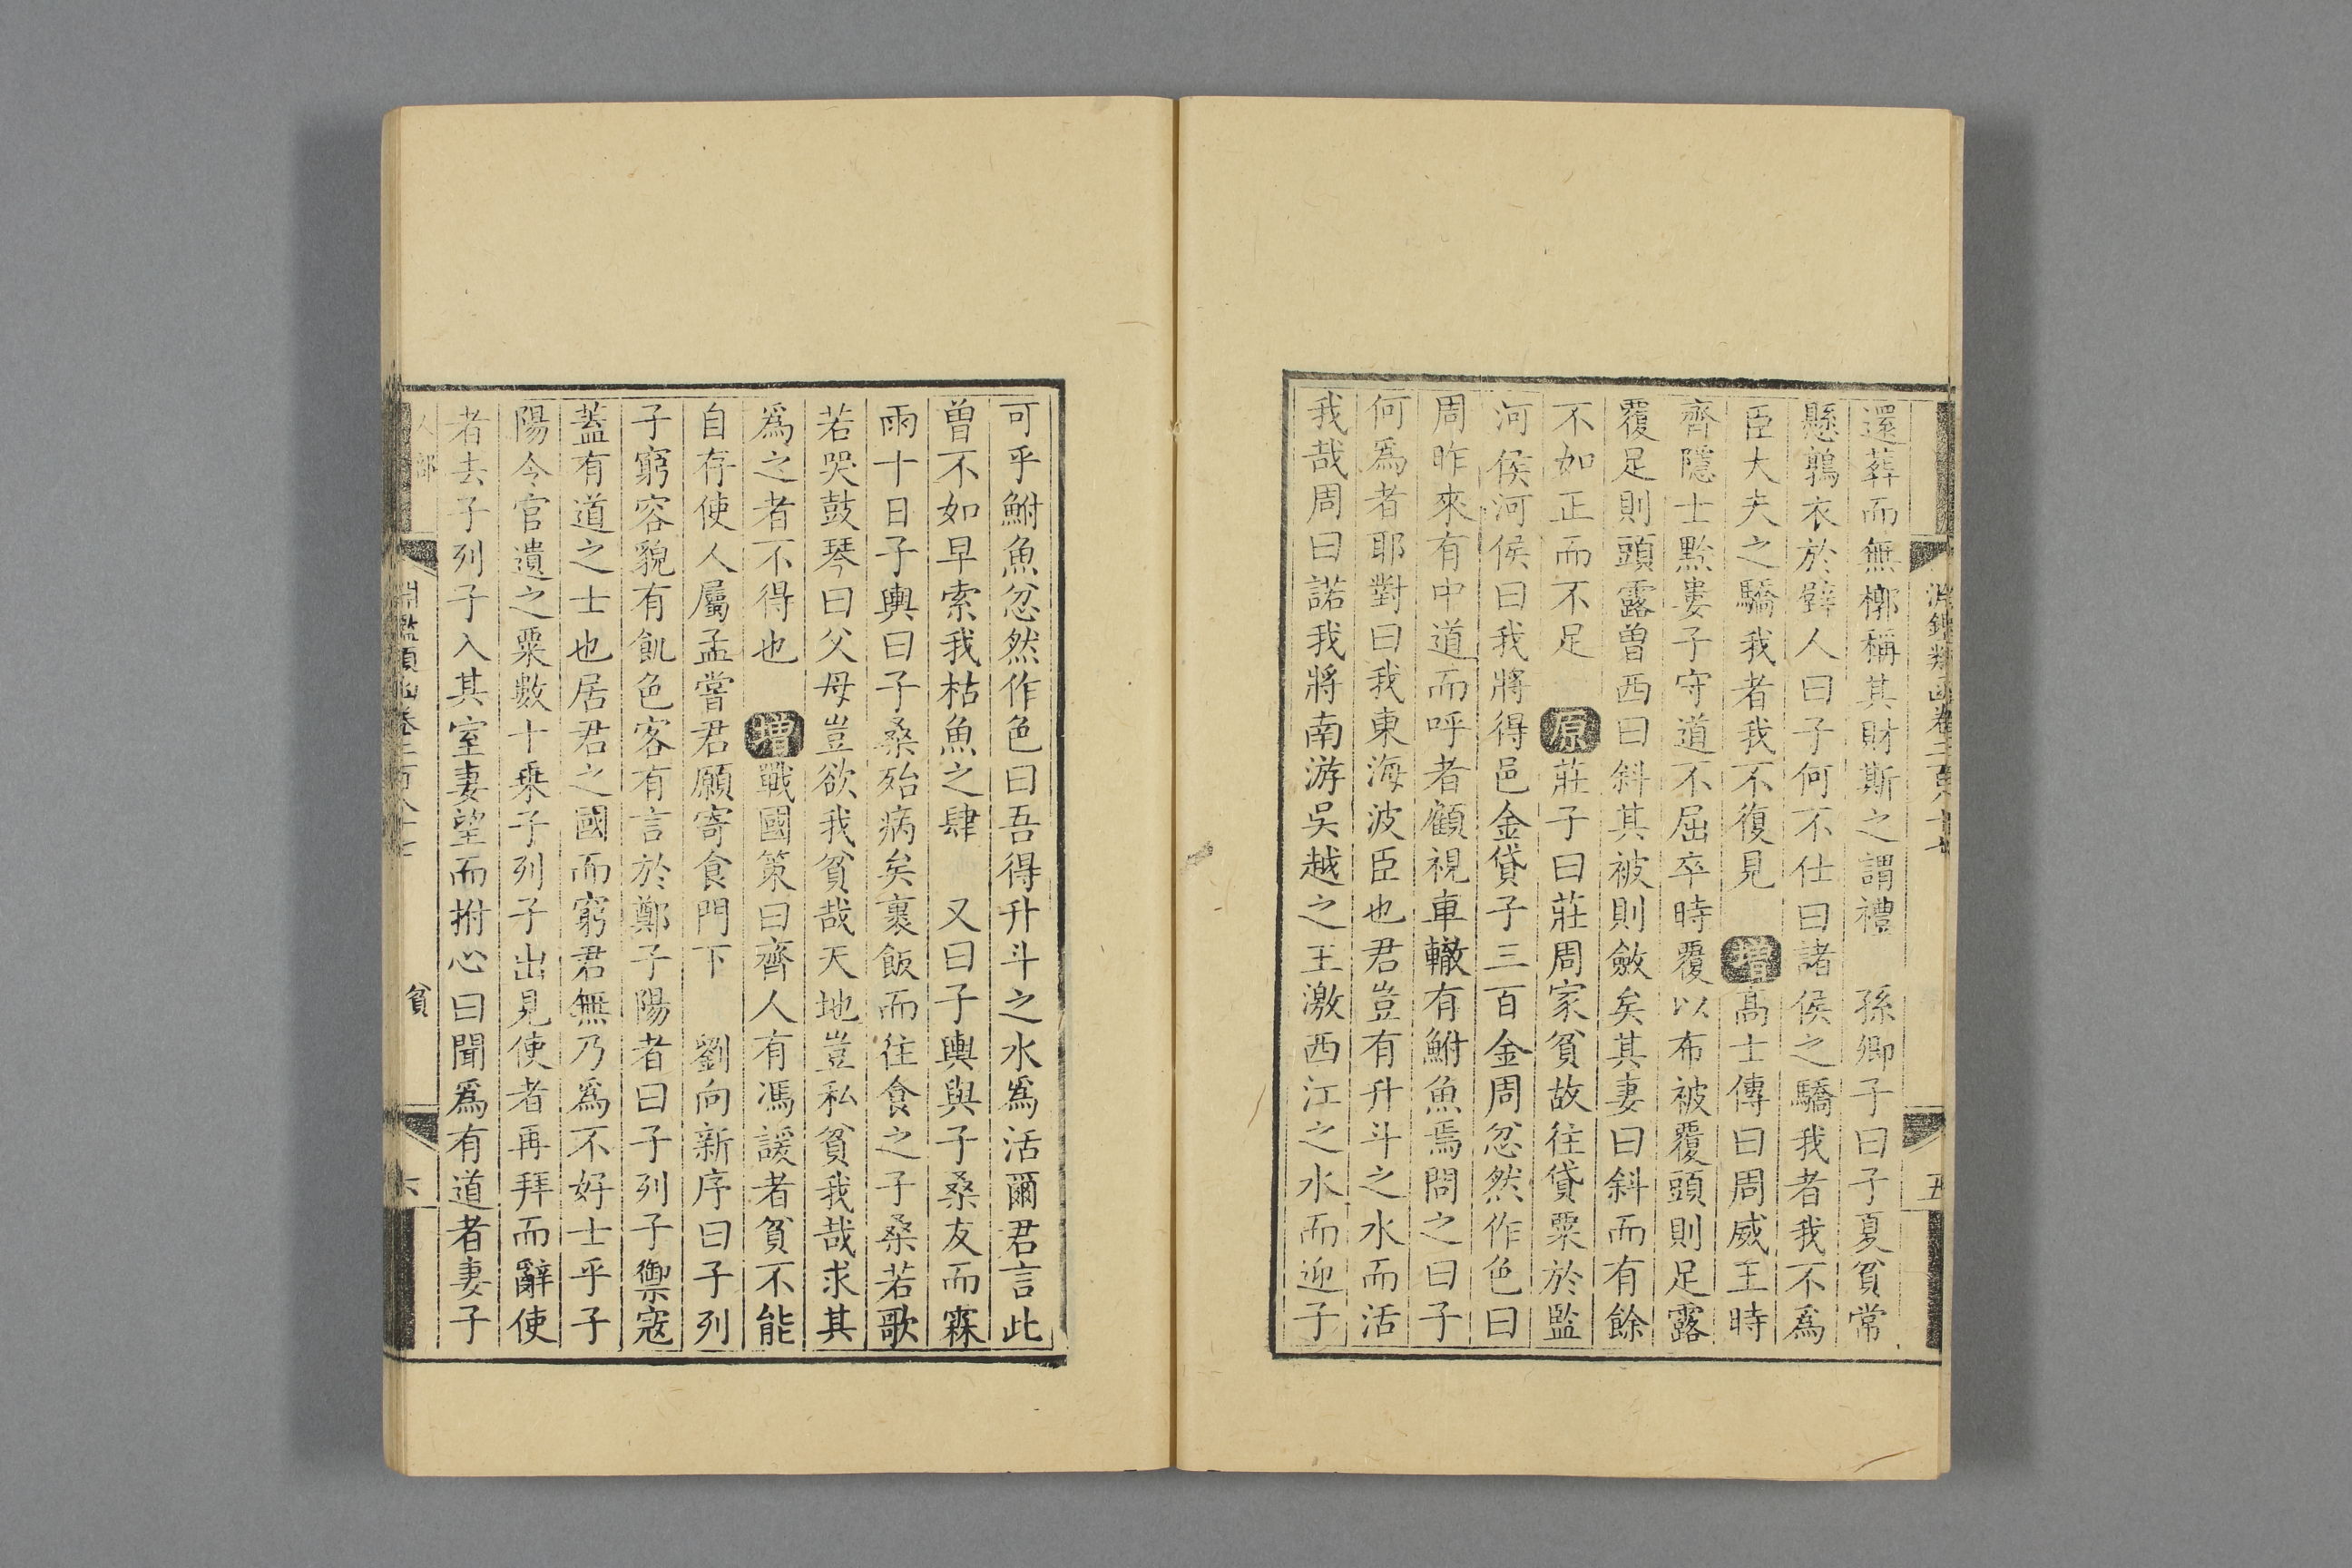 淵鑑類函卷二百八十七
五
還葬而無槨稱其財斯之謂禮　孫卿子曰子夏貧常
懸鶉衣於壁人曰子何不仕曰諸侯之驕我者我不爲
臣大夫之驕我者我不復見　增高士傳曰周威王時
齊隱士黔婁子守道不屈卒時覆以布被覆頭則足露
覆足則頭露曽西曰斜其被則斂矣其妻曰斜而有餘
不如正而不足　原莊子曰莊周家貧故往貸粟於監
河侯河侯曰我將得邑金貸子三百金周忿然作色曰
周昨來有中道而呼者顧視車轍有鮒魚焉問之曰子
何爲者耶對曰我東海波臣也君豈有升斗之水而活
我哉周曰諾我將南游吳越之王激西江之水而迎子
可乎鮒魚忿然作色曰吾得升斗之水爲活爾君言此
曽不如早索我枯魚之肆　又曰子輿與子桑友而霖
雨十日子輿曰子桑殆病矣裹飯而往食之子桑若歌
若哭鼓琴曰父母豈欲我貧哉天地豈私貧我哉求其
爲之者不得也　增戰國策曰齊人有馮諼者貧不能
自存使人屬孟嘗君願寄食門下　劉向新序曰子列
子窮容貌有飢色客有言於鄭子陽者曰子列子禦寇
蓋有道之士也居君之國而窮君無乃爲不好士乎子
陽令官遺之粟數十乗子列子出見使者再拜而辭使
者去子列子入其室妻望而拊心曰聞爲有道者妻子
人部
淵鑑類函卷二百八十七
貧
六